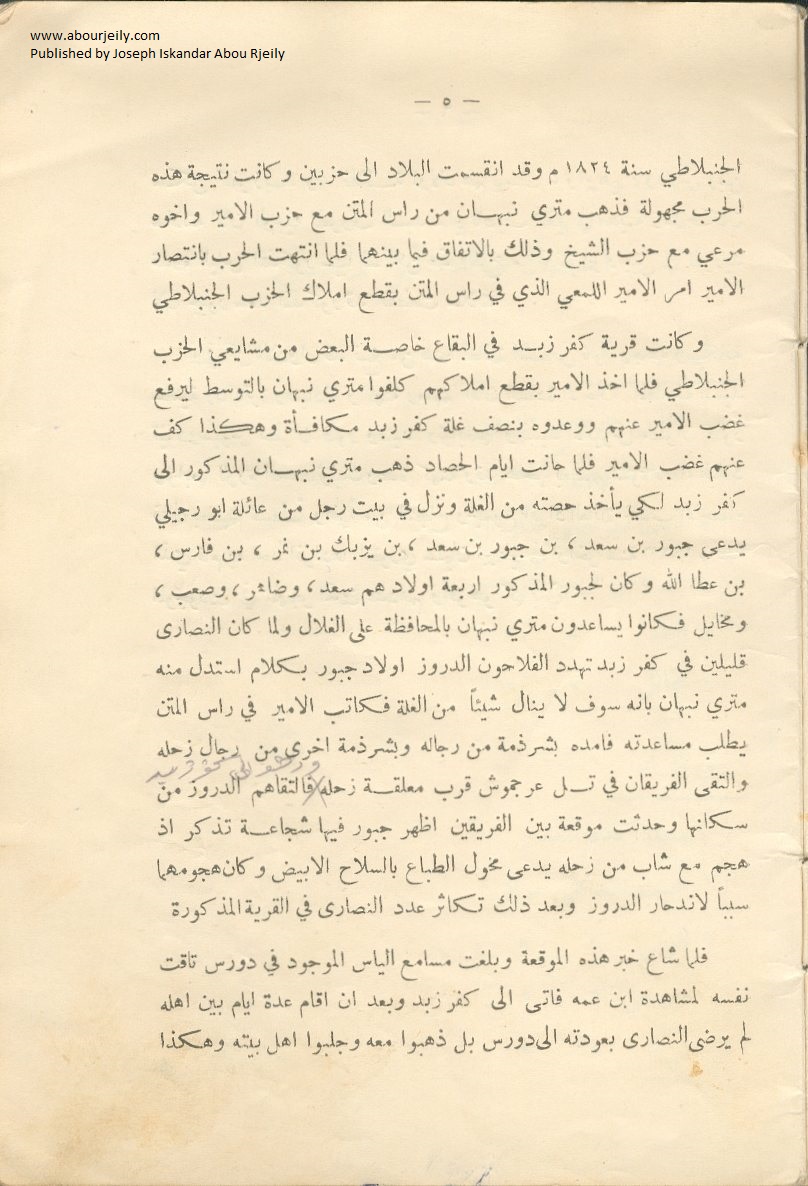 www.abourjeily.com
Published by Joseph Iskandar Abou Rjeily
— ٥ —
الجنبلاطي سنة ١٨٢٤ م وقد انقسمت البلاد الى حزبين وكانت نتيجة هذه
الحرب مجهولة فذهب متري نبهان من راس المتن مع حزب الامير واخوه
مرعي مع حزب الشيخ وذلك بالاتفاق فيما بينهما فلما انتهت الحرب بانتصار
الامير امر الامير اللمعي الذي في راس المتن بقطع املاك الحزب الجنبلاطي
وكانت قرية كفر زبد في البقاع خاصة البعض من مشايعي الحزب
الجنبلاطي فلما اخذ الامير بقطع املاكهم كلفوا متري نبهان بالتوسط ليرفع
غضب الامير عنهم ووعدوه بنصف غلة كفر زبد مكافأة وهكذا كف
عنهم غضب الامير فلما حانت ايام الحصاد ذهب متري نبهان المذكور الى
كفر زبد لكي يأخذ حصته من الغلة ونزل في بيت رجل من عائلة ابو رجيلي
يدعى جبور بن سعد ، بن جبور بن سعد ، بن يزبك بن نمر ، بن فارس ،
بن عطا الله وكان لجبور المذكور اربعة اولاد هم سعد ، وضاهر ، وصعب ،
ومخايل فكانوا يساعدون متري نبهان بالمحافظة على الغلال ولما كان النصارى
قليلين في كفر زبد تهدد الفلاحون الدروز اولاد جبور بكلام استدل منه
متري نبهان بانه سوف لا ينال شيئاً من الغلة فكاتب الامير في راس المتن
يطلب مساعدته فامده بشرذمة من رجاله وبشرذمة اخرى من رجال زحله
والتقى الفريقان في تل عرجموش قرب معلقة زحله فالتقاهم الدروز من
سكانها وحدثت موقعة بين الفريقين اظهر جبور فيها شجاعة تذكر اذ
هجم مع شاب من زحله يدعى مخول الطباع بالسلاح الابيض وكان هجومهما
سبباً لاندحار الدروز وبعد ذلك تكاثر عدد النصارى في القرية المذكورة
فلما شاع خبر هذه الموقعة وبلغت مسامع الياس الموجود في دورس تاقت
نفسه لمشاهدة ابن عمه فاتى الى كفر زبد وبعد ان اقام عدة ايام بين اهله
لم يرضى النصارى بعودته الى دورس بل ذهبوا معه وجلبوا اهل بيته وهكذا